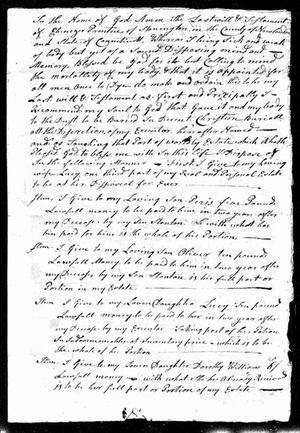 In the Name of God Amen The Last Will & Testament
of Ebenezer of Stonington in the County of New London
and State of Connecticut Whereas I being sick and weak
of body but yet of a Sound Disposing mind and
Memory, Blessed be God for it but Calling to mind
the mortality of my body & that it is appointed for
all men Once to Dye. do make and ordain this my
Last Will & Testament as First and Principally I
Recommend my Soul to God that Gave it and my body
to the Dust to be Buried In Decent Christian Buriall
att the Discretion of my Executor hereafter Named
and as Touching that Part of worldly Estate which it hath
Pleased God to bless me with in this Life I Dispose of
In the following Manner First I Give to my Loving
wife Lucy, one third part of my Real and Personal Estate
to be at her Disposeal for Ever
Itm. I Give to my Loving Son Peris five Pound
Lawfull money to be paid him in two year after
my Decease by my Son Stanton. with what has
ben paid for him is the whole of his Portion
Itm. I Give to my Loving Son Oliver ten pound
Lawfull Money to be paid to him in two year after
my Decease by my Son Stanton is his full part or
Portion in my Estate
Itm I Give to my Loven Daughter Lucy Ten pound
Lawfull money to be paid to her in two year after
my Decease by my Executor Taking part of her Potion
In at Inventory price which is to be
the whole of her Potion
Itm. I Give to my Loven Daughter Dorothy Williams 6/
Lawfull money with what She has Already Received
is to be her full part or Portion of my Estate